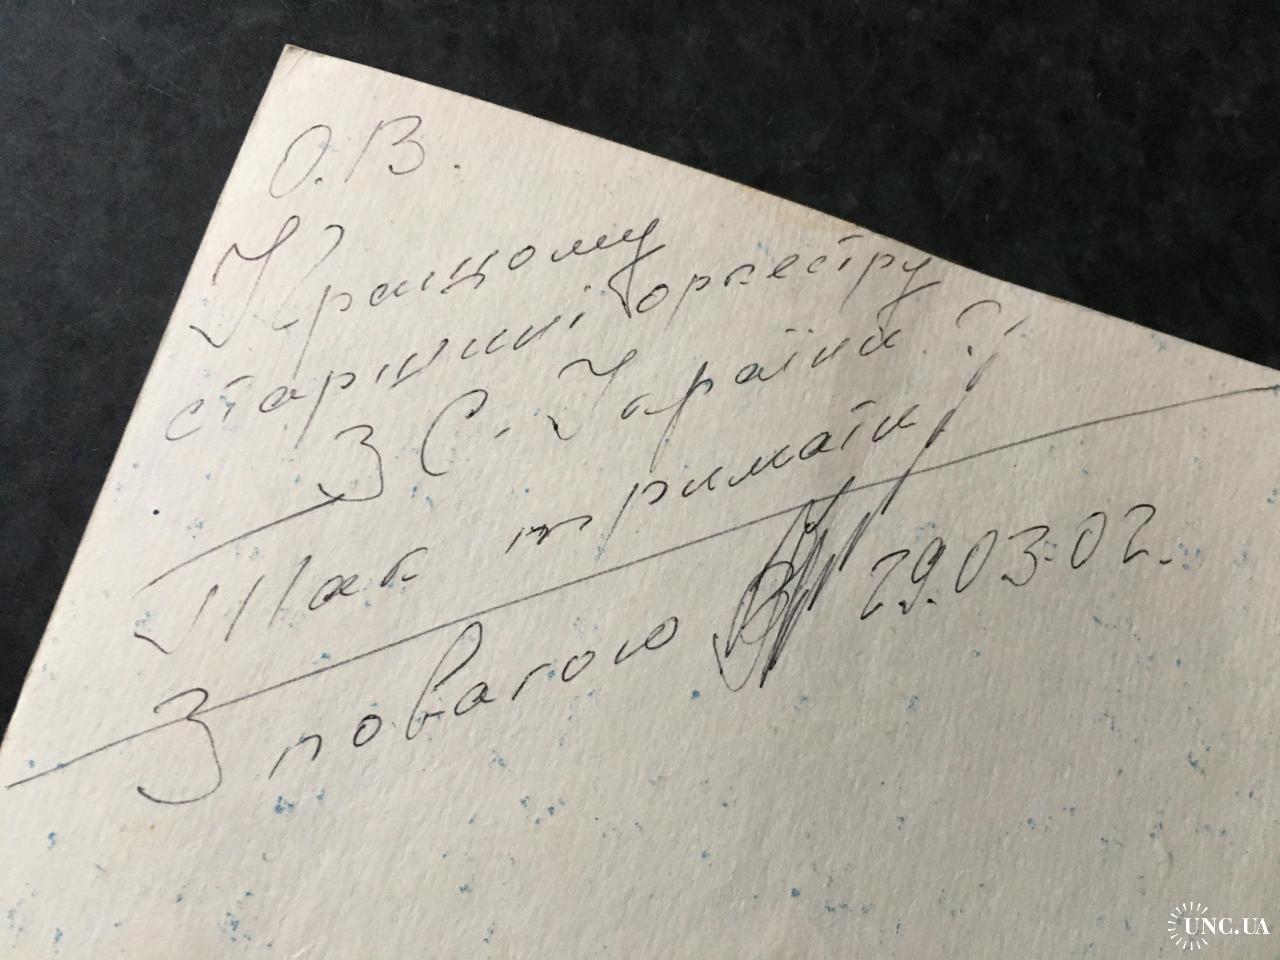 О.В.
Кращому
старшині оркестру
ЗС. України?!
Так тримати!
З повагою 29.03.02.
UNC.UA